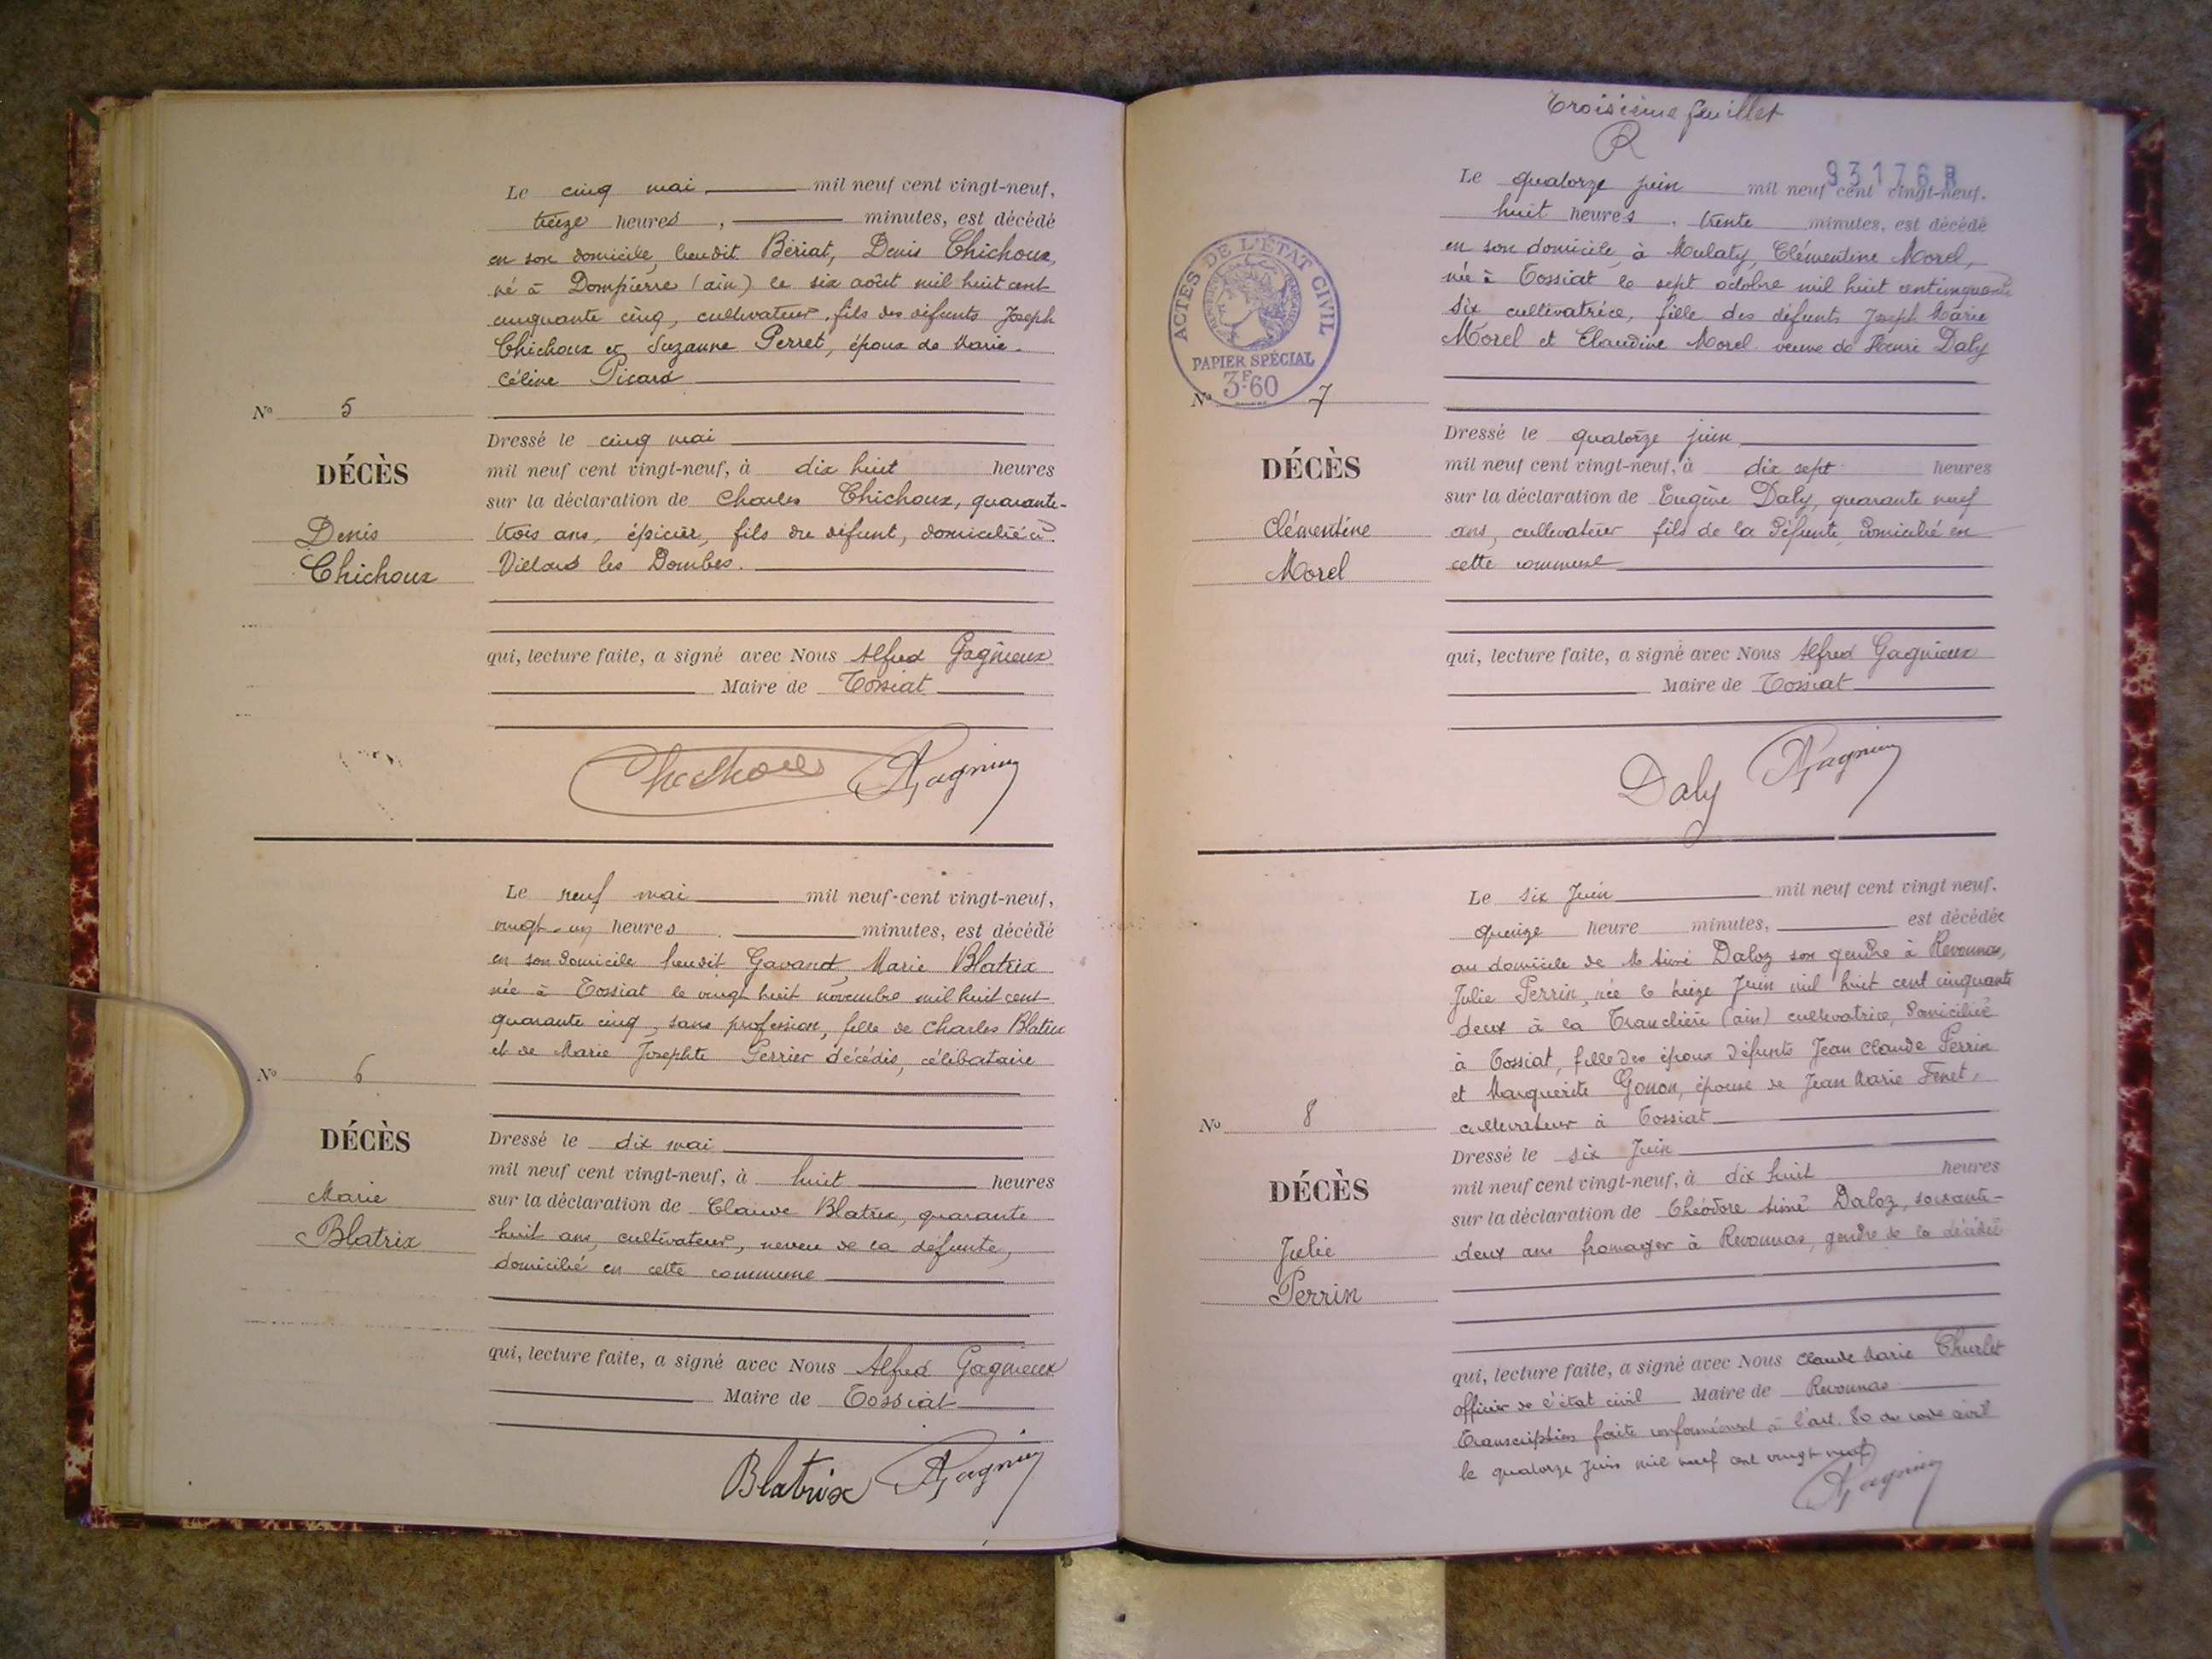 Le cinq mai mil neuf cent vingt-neuf,
treize heures, minutes, est décédé
en son domicile, lieudit Bériat, Denis Chichoux,
né à Dompierre (ain) le six août mil huit cent
cinquante cinq, cultivateur, fils des défunts Joseph
Chichoux et Suzanne Perret, époux de Marie-
Céline Picard
No 5
DÉCÈS
Denis
Chichoux
Dressé le cinq mai
mil neuf cent vingt-neuf, à dix huit heures
sur la déclaration de Charles Chichoux, quarante-
trois ans, épicier, fils du défunt, domicilié à
Villars les Dombes.
qui, lecture faite, a signé avec Nous Alfred Gagnieux
Maire de Tossiat
Chichoux AGagnieux
Le neuf mai mil neuf-cent vingt-neuf,
vingt-un heures. minutes, est décédé
en son domicile lieudit Gavand, Marie Blatrix
née à Tossiat le vingt huit novembre mil huit cent
quarante cinq, sans profession, fille de Charles Blatrix
et de Marie Josephte Perrier décédés, célibataire
No 6
DÉCÈS
Marie
Blatrix
Dressé le dix mai
mil neuf cent vingt-neuf, à huit heures
sur la déclaration de Claude Blatrix, quarante
huit ans, cultivateur, neveu de la défunte,
domicilié en cette commune
qui, lecture faite, a signé avec Nous Alfred Gagnieux
Maire de Tossiat
Blatrix AGagnieux
Troisième feuillet
93176 R
Le quatorze juin mil neuf cent vingt-neuf.
huit heures, trente minutes, est décédé
en son domicile, à Mulaty, Clémentine Morel,
née à Tossiat le sept octobre mil huit cent cinquante
six cultivatrice, fille des défunts Joseph Marie
Morel et Claudine Morel veuve de Henri Daly
ACTES DE L'ÉTAT CIVIL
PAPIER SPÉCIAL
3F60
No 7
DÉCÈS
Clémentine
Morel
Dressé le quatorze juin
mil neuf cent vingt-neuf, à dix sept heures
sur la déclaration de Eugène Daly, quarante neuf
ans, cultivateur fils de la défunte, domicilié en
cette commune
qui, lecture faite, a signé avec Nous Alfred Gagnieux
Maire de Tossiat
Daly AGagnieux
Le six Juin mil neuf cent vingt neuf.
quinze heure minutes, est décédée
au domicile de M Aimé Daloz son gendre à Revonnas,
Julie Perrin, née le treize Juin mil huit cent cinquante
deux à la Tranclière (ain) cultivatrice, domiciliée
à Tossiat, fille des époux défunts Jean Claude Perrin
et Marguerite Gonon, épouse de Jean Marie Fenet,
cultivateur à Tossiat
No 8
DÉCÈS
Julie
Perrin
Dressé le six Juin
mil neuf cent vingt-neuf, à dix huit heures
sur la déclaration de Théodore Aimé Daloz, soixante-
deux ans fromager à Revonnas, gendre de la décédée
qui, lecture faite, a signé avec Nous Claude Marie Churlet
officier de l'état civil Maire de Revonnas
Transcription faite conformément à l'art. 80 du code civil
le quatorze Juin mil neuf cent vingt neuf
AGagnieux